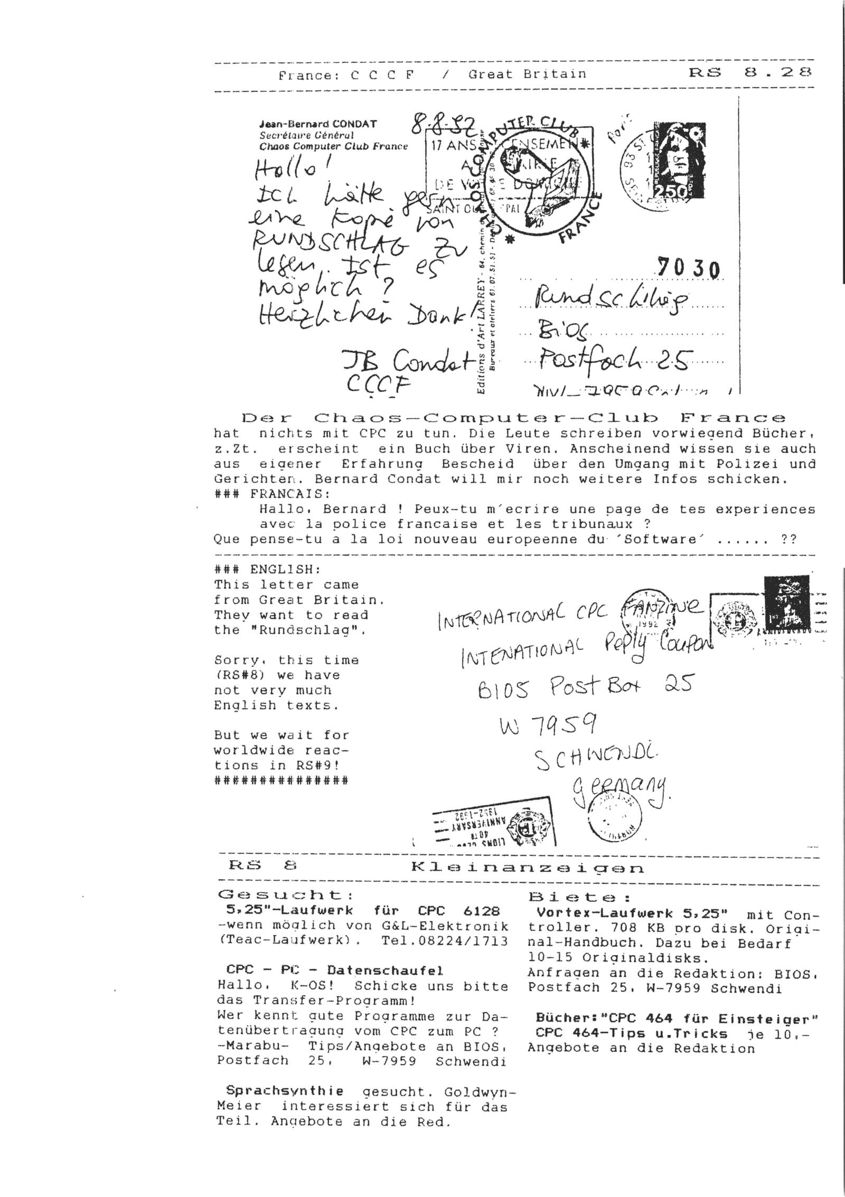 France: C C C F / Great Britain RS 8.28
Jean-Bernard CONDAT
Secrétaire Général
Chaos Computer Club France
8.8.92
17 ANS
SAINT OU
CHAOS COMPUTER CLUB
FRANCE
Paris
2,50
Hallo!
Ich hätte gern
eine Kopie von
RUNDSCHLAG zu
lesen. Ist es
möglich ?
Herzlichen Dank!
JB Condat
CCCF
Editions d'Art LARREY
7030
Rundschlag
BiOS
Postfach 25
Der Chaos-Computer-Club France
hat nichts mit CPC zu tun. Die Leute schreiben vorwiegend Bücher,
z.Zt. erscheint ein Buch über Viren. Anscheinend wissen sie auch
aus eigener Erfahrung Bescheid über den Umgang mit Polizei und
Gerichten. Bernard Condat will mir noch weitere Infos schicken.
### FRANCAIS:
Hallo, Bernard ! Peux-tu m´ecrire une page de tes experiences
avec la police francaise et les tribunaux ?
Que pense-tu a la loi nouveau europeenne du ´Software´ ...... ??
### ENGLISH:
This letter came
from Great Britain.
They want to read
the "Rundschlag".
Sorry, this time
(RS#8) we have
not very much
English texts.
But we wait for
worldwide reac-
tions in RS#9!
###############
INTERNATIONAL CPC FANZINE
INTENATIONAL Reply Coupon
BIOS Post Box 25
W 7959
SCHWENDI
Germany.
1992
LIONS
40TH
ANNIVERSARY
1952-1992
RS 8 Kleinanzeigen
Gesucht:
5,25"-Laufwerk für CPC 6128
-wenn möglich von G&L-Elektronik
(Teac-Laufwerk). Tel.08224/1713
CPC - PC - Datenschaufel
Hallo, K-OS! Schicke uns bitte
das Transfer-Programm!
Wer kennt gute Programme zur Da-
tenübertragung vom CPC zum PC ?
-Marabu- Tips/Angebote an BIOS,
Postfach 25, W-7959 Schwendi
Sprachsynthie gesucht. Goldwyn-
Meier interessiert sich für das
Teil. Angebote an die Red.
Biete:
Vortex-Laufwerk 5,25" mit Con-
troller. 708 KB pro disk. Origi-
nal-Handbuch. Dazu bei Bedarf
10-15 Originaldisks.
Anfragen an die Redaktion: BIOS,
Postfach 25, W-7959 Schwendi
Bücher:"CPC 464 für Einsteiger"
CPC 464-Tips u.Tricks je 10,-
Angebote an die Redaktion